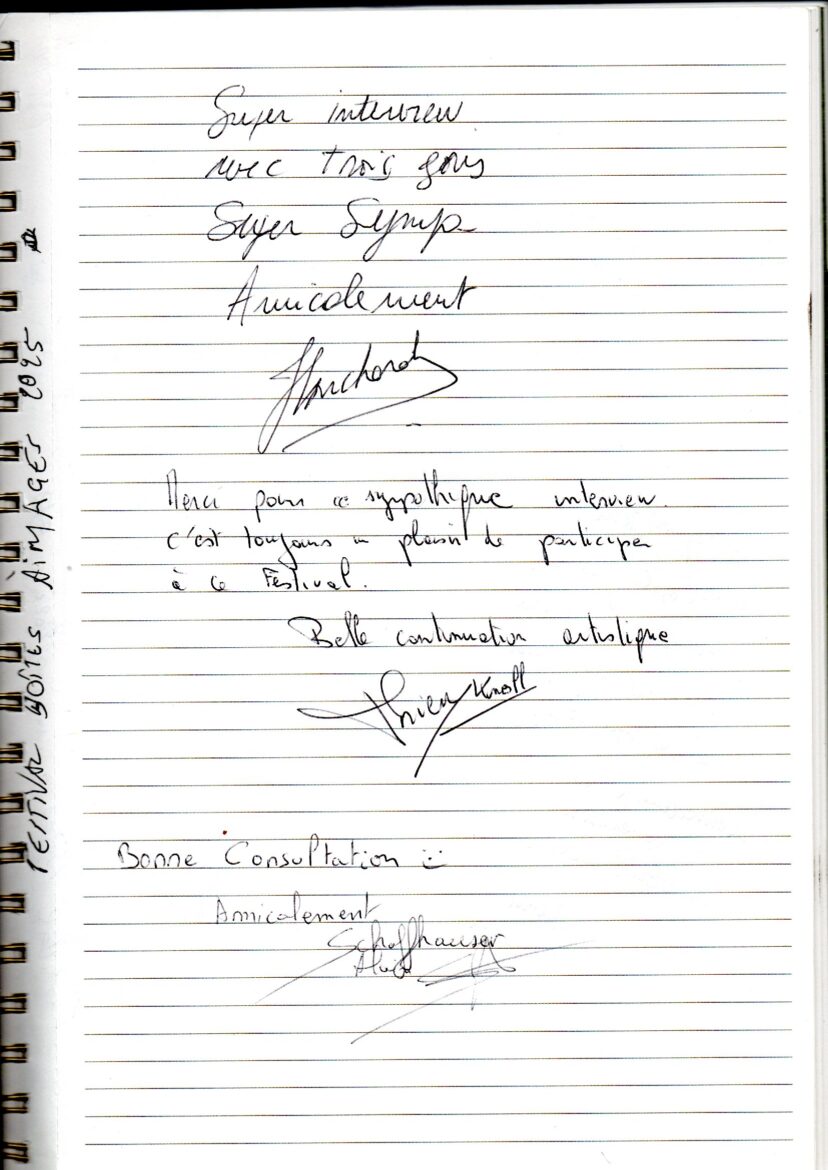 Super interview
avec trois gars
Super Sympa
Amicalement
Merci pour ce sympathique interview.
c'est toujours un plaisir de participer
à ce Festival.
Belle continuation artistique
Knoll
Bonne Consultation :)
Amicalement
Schaffhauser
FESTIVAL BOITES AIMAGES 2025